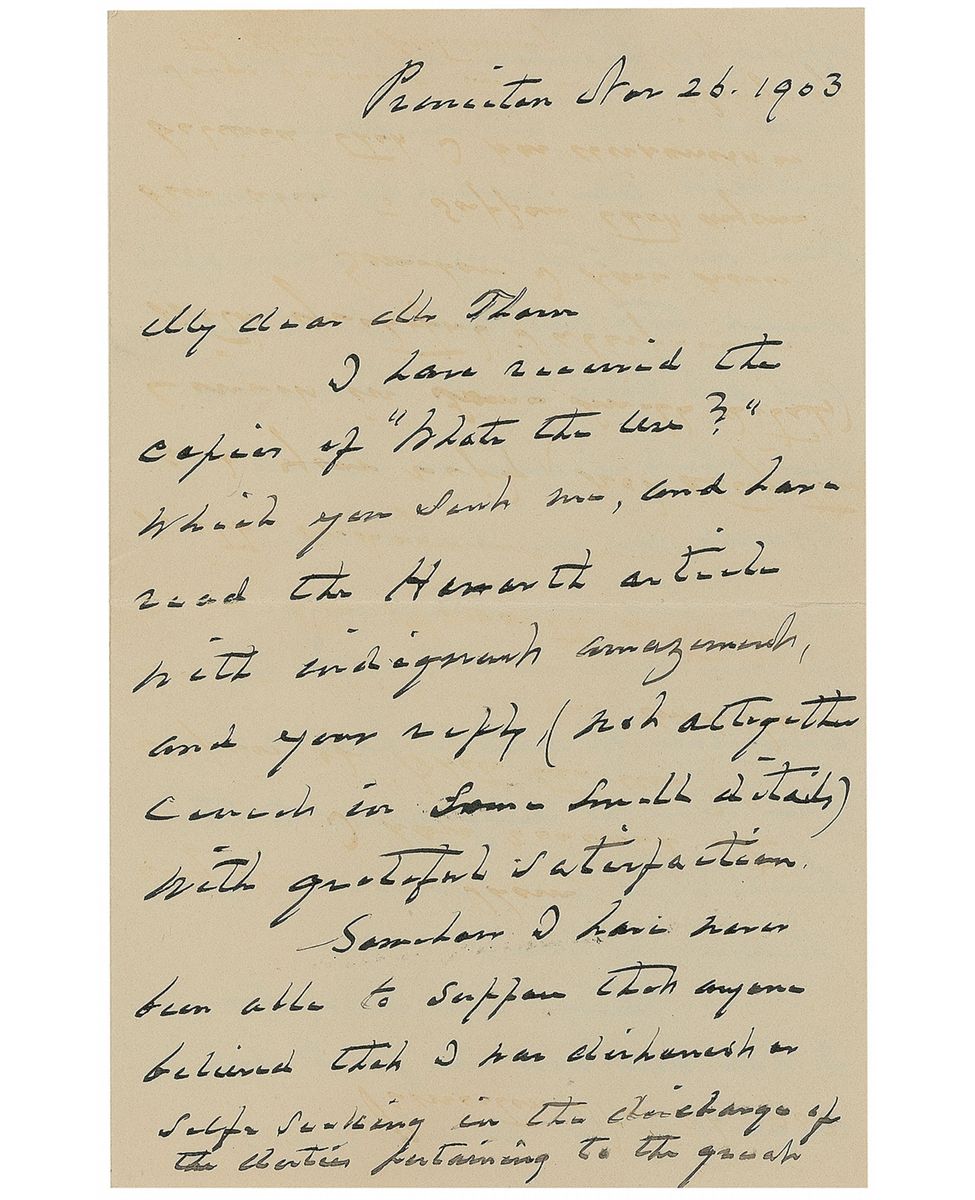 Princeton Nov 26. 1903
My dear Mr Thorn
I have received the
copies of "Whats the Use?"
which you sent me, and have
read the Howarth article
with indignant amazement,
and your reply, (not altogether
correct in some small details)
with grateful satisfaction.
Somehow I have never
been able to suppose that anyone
believed that I was dishonest or
self seeking in the discharge of
the duties pertaining to the great